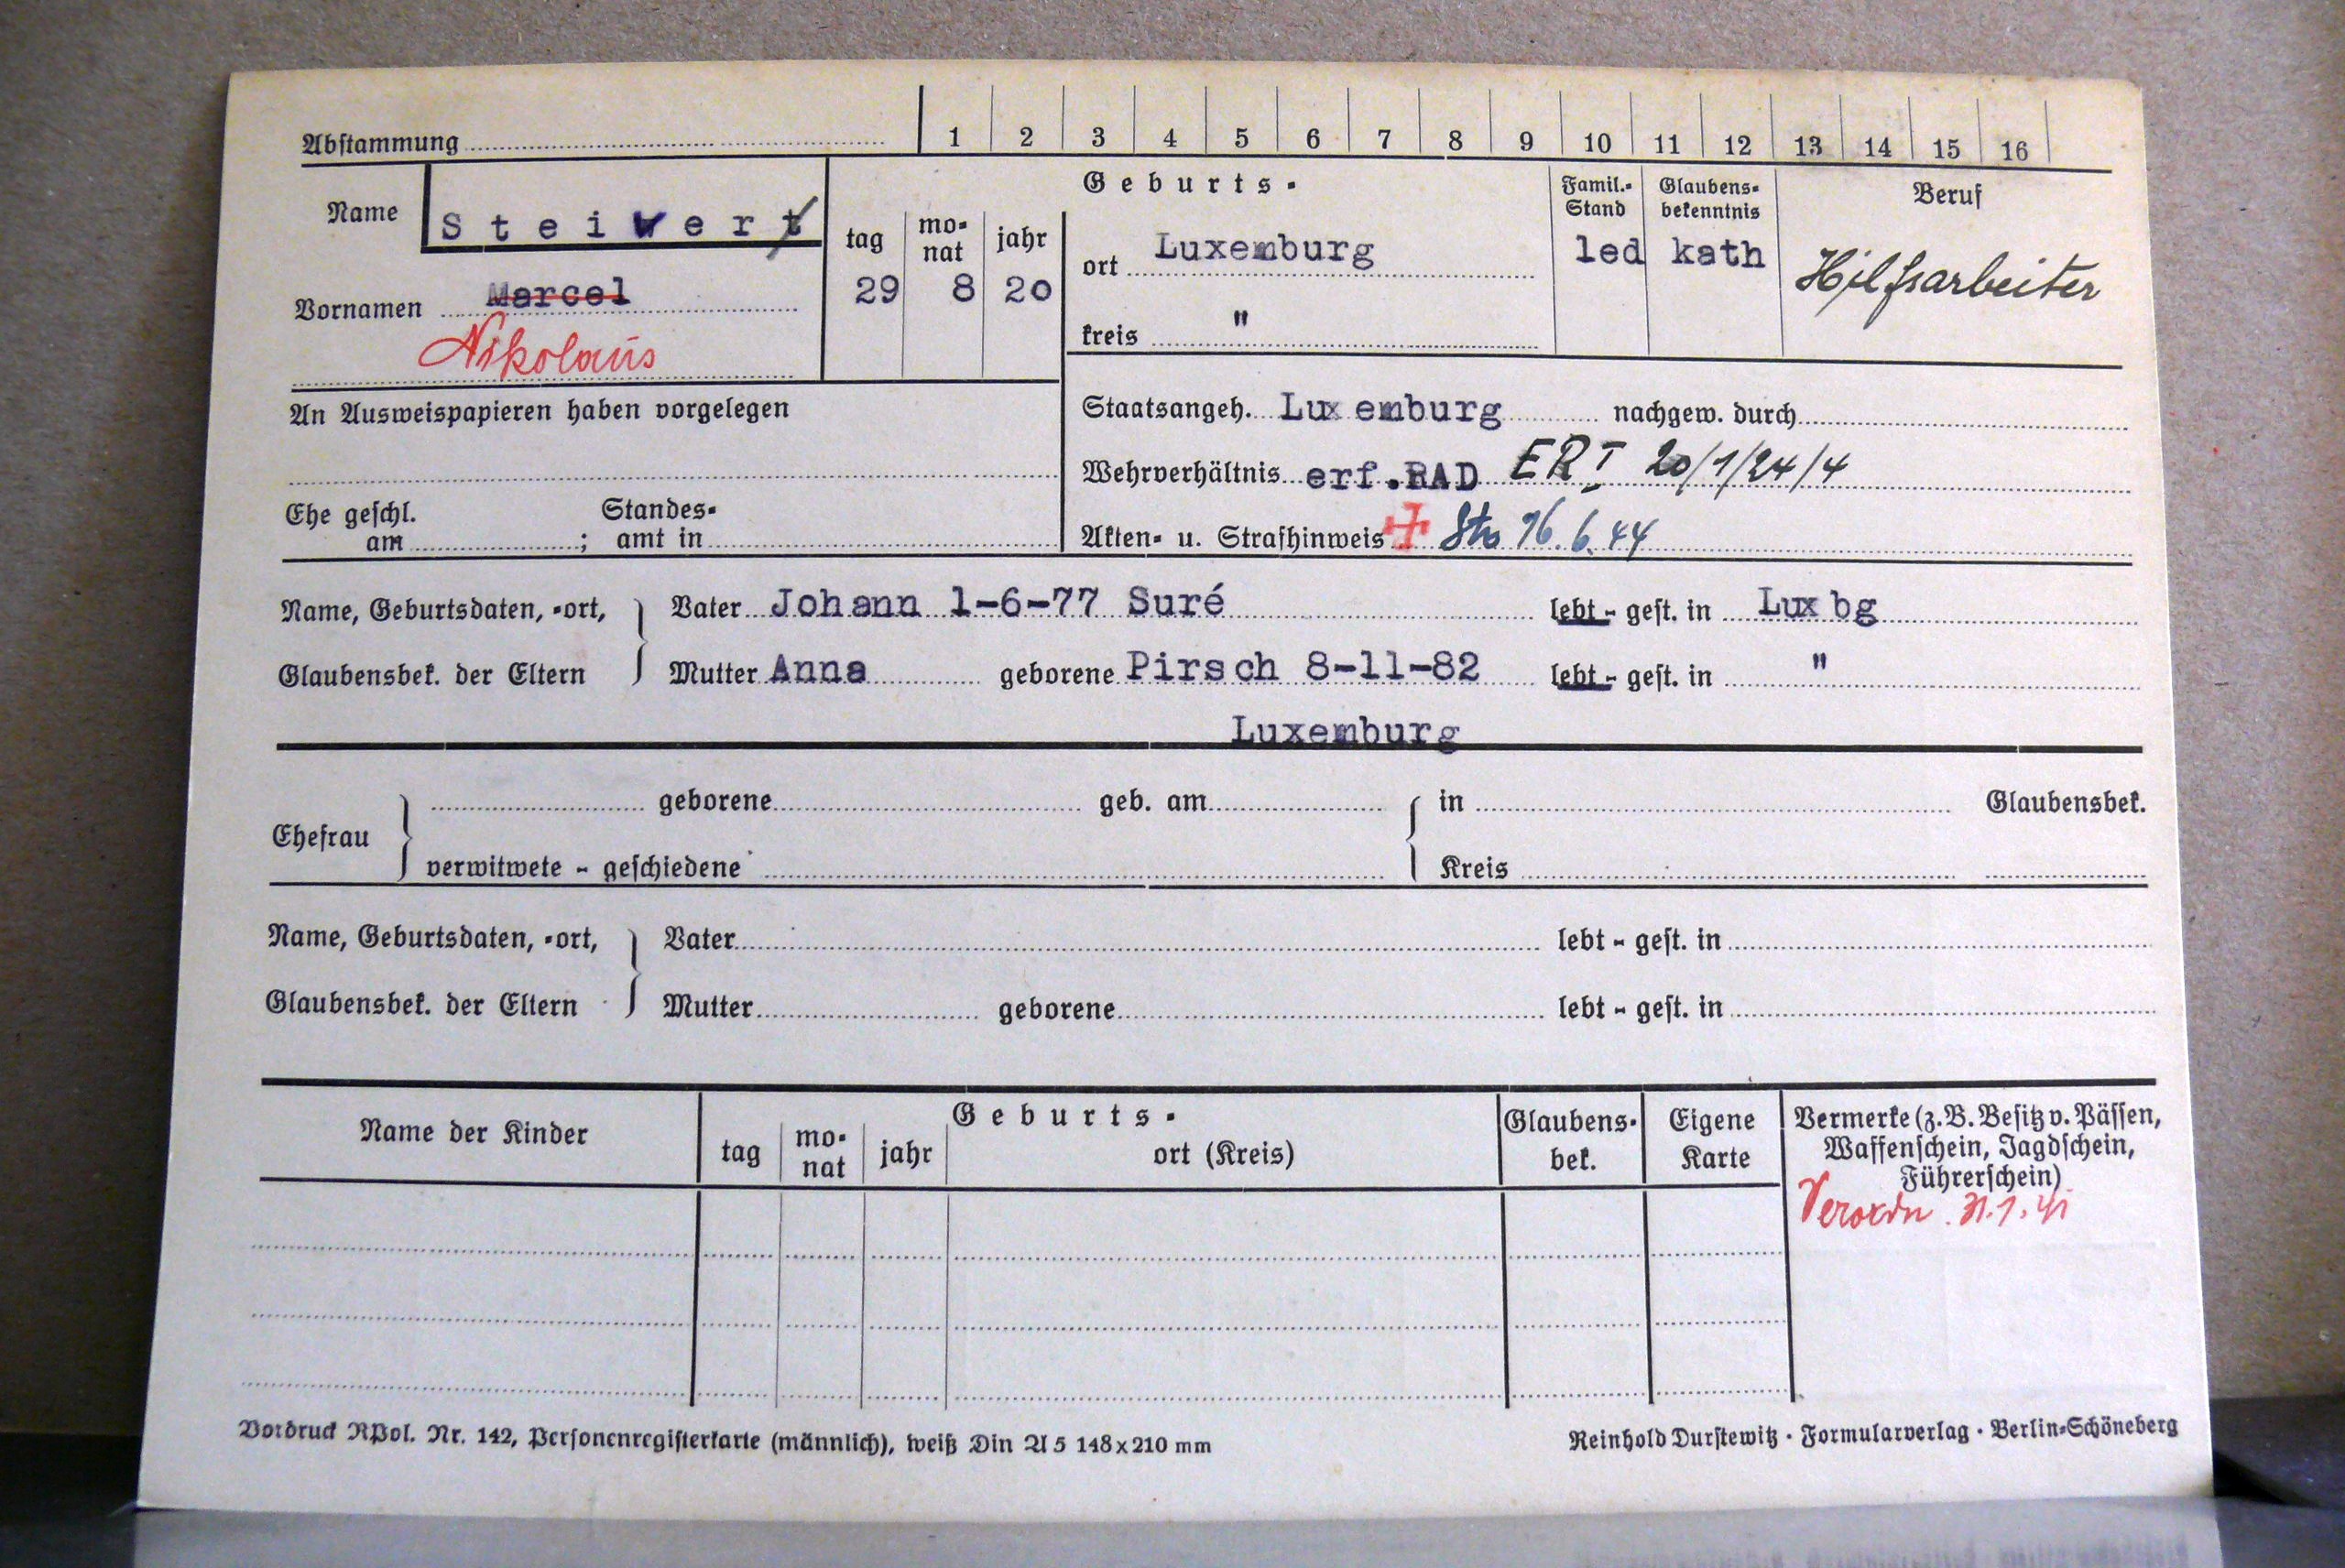 Abstammung 1 2 3 4 5 6 7 8 9 10 11 12 13 14 15 16
Name Steiwert
Vornamen Marcel
Nikolaus
Geburts-
tag monat jahr
29 8 20
ort Luxemburg
kreis "
Famil.-Stand
led
Glaubensbekenntnis
kath
Beruf
Hilfsarbeiter
An Ausweispapieren haben vorgelegen
Ehe geschl. am ; Standesamt in
Staatsangeh. Luxemburg nachgew. durch
Wehrverhältnis erf.RAD ER I 20/1/24/4
Akten- u. Strafhinweis 16.6.44
Name, Geburtsdaten, -ort, Vater Johann 1-6-77 Suré lebt - gest. in Luxbg
Glaubensbek. der Eltern Mutter Anna geborene Pirsch 8-11-82 lebt - gest. in "
Luxemburg
Ehefrau geborene geb. am in Glaubensbek.
verwitwete - geschiedene Kreis
Name, Geburtsdaten, -ort, Vater lebt - gest. in
Glaubensbek. der Eltern Mutter geborene lebt - gest. in
Name der Kinder
Geburts-
tag monat jahr ort (Kreis)
Glaubensbek.
Eigene Karte
Vermerke (z. B. Besitz v. Pässen,
Waffenschein, Jagdschein,
Führerschein)
Vordruck RPol. Nr. 142, Personenregisterkarte (männlich), weiß Din A 5 148x210 mm
Reinhold Durstewitz · Formularverlag · Berlin-Schöneberg